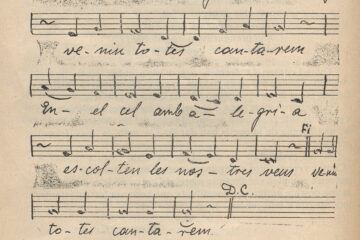 ve-nin to-tes can-ta-rem
En- el cel amb a- le-gri-a
Fi
es-col-ten les nos-tres veus venin
D.C.
to-tes can-ta-rem.